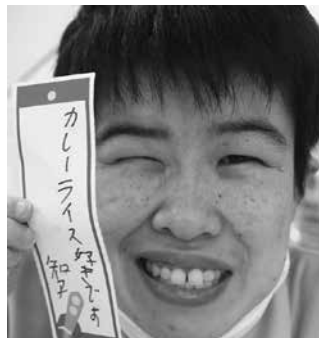 カレーライス
好きです
知子